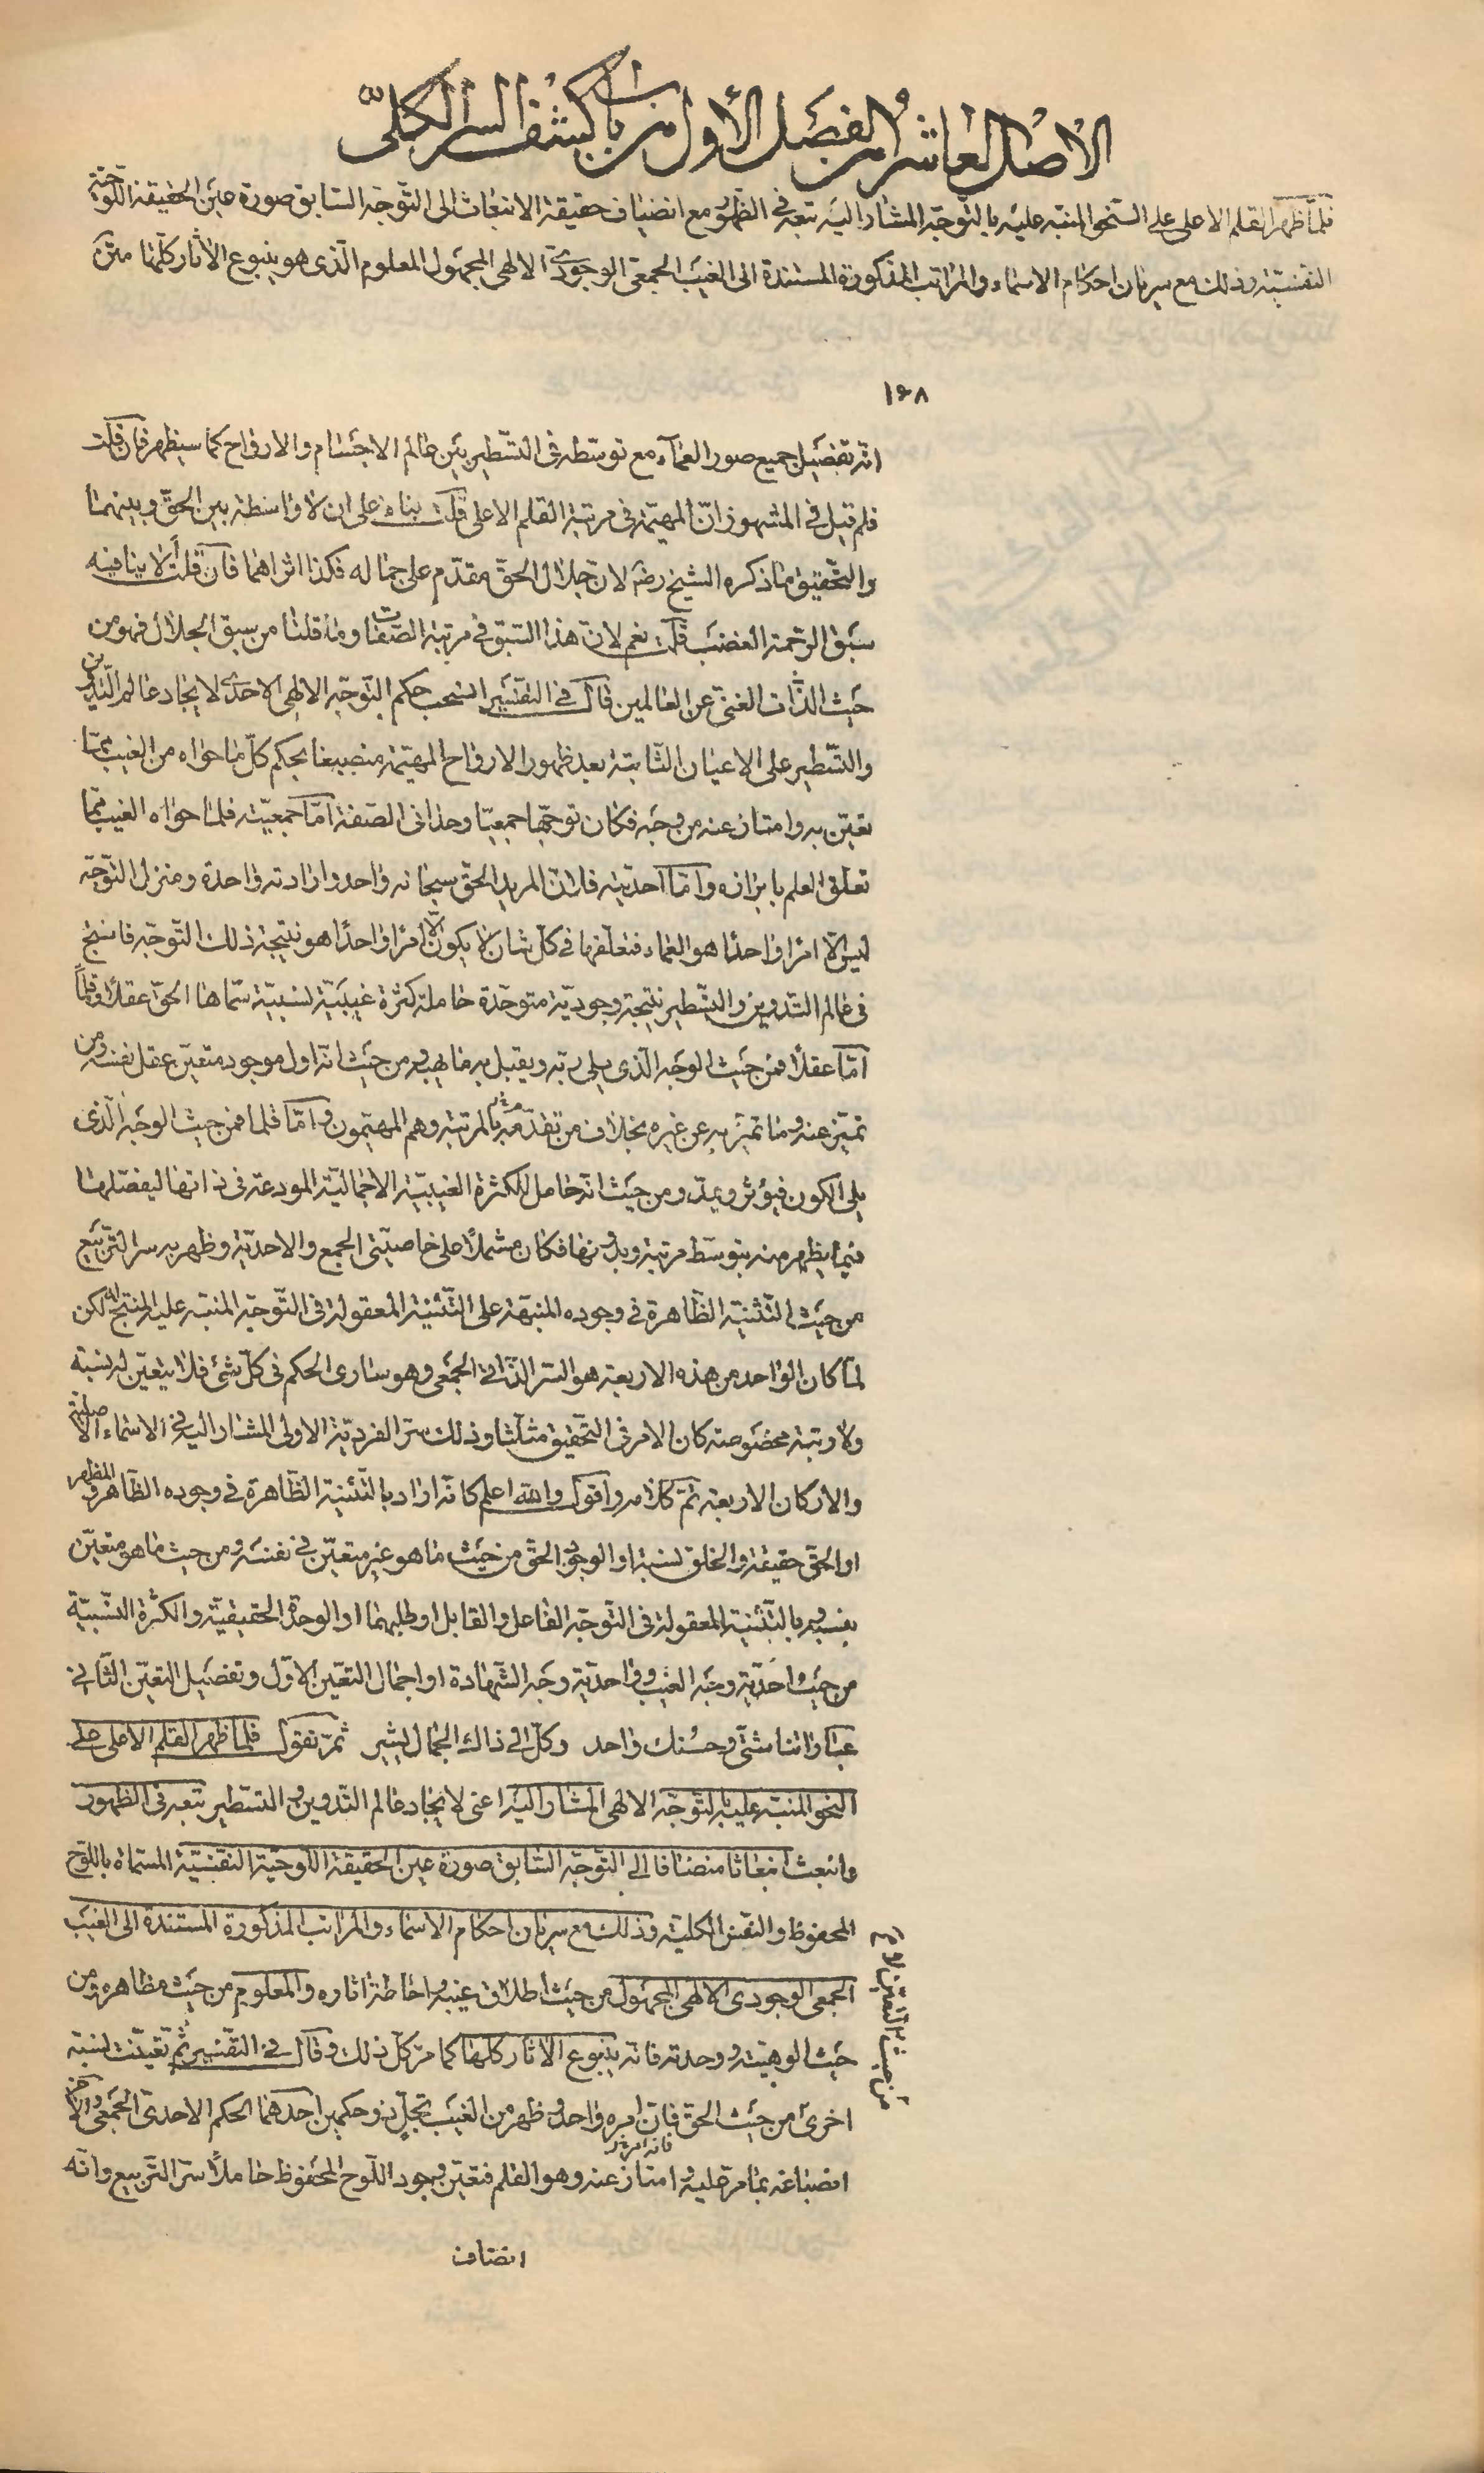 الأصل العاشر من الفصل الأول من باب كشف السر الكلّى
فلمّا ظهر القلم الاعلى على النحو المنبّه عليه بالتوجّه المشار اليه تبعه فى الظهور مع انضياف حقيقة الانبعاث الى التّوجّه السّابق صورة عين الحقيقة اللوحيّة
النفسيّة وذلك مع سريان احكام الاسماء والمراتب المذكورة المستندة الى الغيب الجمعى الوجودى الالهى المجهول المعلوم الّذى هو ينبوع الآثار كلّها متن
١٦٨
انّه تفصيل جميع صور العمآء مع توسّطه فى التسّطير بين عالم الاجسام والارواح كما سيظهر فان قلت
فلم قيل فى المشهور انّ المهيّمة فى مرتبة القلم الاعلى قلت بناء على ان لا واسطة بين الحقّ وبينهما
والتّحقيق ما ذكره الشيخ رضه لانّ جلال الحقّ مقدّم على جماله فكذا اثراهما فان قلت ألا ينافيه
سبق الرّحمة الغضب قلت نعم لانّ هذا السّبق فى مرتبة الصّفات وما قلنا من سبق الجلال فهو من
حيث الذّات الغنىّ عن العالمين قال فى التفسير انسحب حكم التّوجّه الالهى الاحدى لايجاد عالم التّدوين
والتّسطير على الاعيان الثّابتة بعد ظهور الارواح المهيّمة منصبغا بحكم كلّ ما حواه من الغيب ممّا
تعيّن به وامتاز عنه من وجه فكان توجّها جمعيّا وحدانى الصّفة امّا جمعيّته فلما حواه الغيب ممّا
تعلّق العلم بابرازه وامّا احديّته فلانّ المريد الحقّ سبحانه واحد وارادته واحدة ومنزل التّوجّه
ليس الّا امرا واحدا هو العماء فمتعلّقها فى كلّ شان لا يكون الّا امرا واحدا هو نتيجة ذلك التّوجّه فانتج
فى عالم التّدوين والتسّطير نتيجة وجوديّة متوحّدة حاملة كثرة غيبيّة نسبيّة سمّاها الحقّ عقلا وقلماً
امّا عقلاً فمن حيث الوجه الّذى يلى ربّه ويقبل به ما يهبه ومن حيث انّه اوّل موجود متعيّن عقل نفسه ومن
تميّز عنه وما تميّز به عن غيره بخلاف من تقدّمه بالمرتبة وهم المهيّمون وامّا قلما فمن حيث الوجه الّذى
يلى الكون فيؤثّر ويمدّ ومن حيث انّه حامل للكثرة الغيبيّة الاجماليّة المودعة فى ذاتها ليفصّلها
فيما يظهر منه بتوسّط مرتبة وبدونها فكان مشتملاً على خاصيّتى الجمع والاحديّة وظهر به سرّ التّربيع
من حيث التّثنية الظّاهرة فى وجوده المنبّهة على التّثنية المعقولة فى التّوجّه المنبّه عليه المنتج له لكن
لمّا كان الواحد من هذه الاربعة هو السّر الذّاتى الجمعى وهو سارى الحكم فى كلّ شىء فلا يتعيّن له نسبة
ولا رتبة مخصوصة كان الامر فى التّحقيق مثلّثا وذلك سرّ الفرديّة الاولى المشار اليه فى الاسماء الاصليّة
والاركان الاربعة تمّ كلامه واقول والله اعلم كانّه اراد بالتّثنية الظّاهرة فى وجوده الظّاهر والمظهر
او الحقّ حقيقة والخلق نسبة او الوجود الحقّ من حيث ما هو غير متعيّن فى نفسه ومن حيث ما هو متعيّن
بغيره وبالتّثنية المعقولة فى التّوجّه الفاعل والقابل او طلبهما او الوحدة الحقيقيّة والكثرة النّسبيّة
من حيث احديّة وجه الغيب وواحديّة وجه الشّهادة او اجمال التعيّن الاوّل وتفصيل التعيّن الثّانى
عباراتنا شتّى وحسنك واحد وكلّ الى ذاك الجمال يشير ثمّ نقول فلمّا ظهر القلم الاعلى على
النحو المنبّه عليه بالتوجّه الالهى المشار اليه اعنى لايجاد عالم التّدوين والتسّطير تبعه فى الظهور
وانبعث انبعاثا منضافا الى التّوجّه السّابق صورة عين الحقيقة اللوحيّة النّفسيّة المسمّاة باللّوح
المحفوظ والنّفس الكليّة وذلك مع سريان احكام الاسماء والمراتب المذكورة المستندة الى الغيب
الجمعى الوجودى الالهى المجهول من حيث اطلاق غيبه واحاطة آثاره والمعلوم من حيث مظاهره ومن
من حيث التعيّن الاول
حيث الوهيّته ووحدته فانّه ينبوع الآثار كلّها كما مرّ كلّ ذلك وقال فى التّفسير ثمّ تعيّنت نسبة
اخرى من حيث الحقّ فانّ امره واحد وظهر من الغيب تجلّ ذو حكمين احدهما الحكم الاحدى الجمعى والآخر
انصباغه بما مرّ عليه وامتاز عنه وهو القلم فتعيّن وجود اللّوح المحفوظ حاملاً سرّ التّربيع وانّه
انضاف